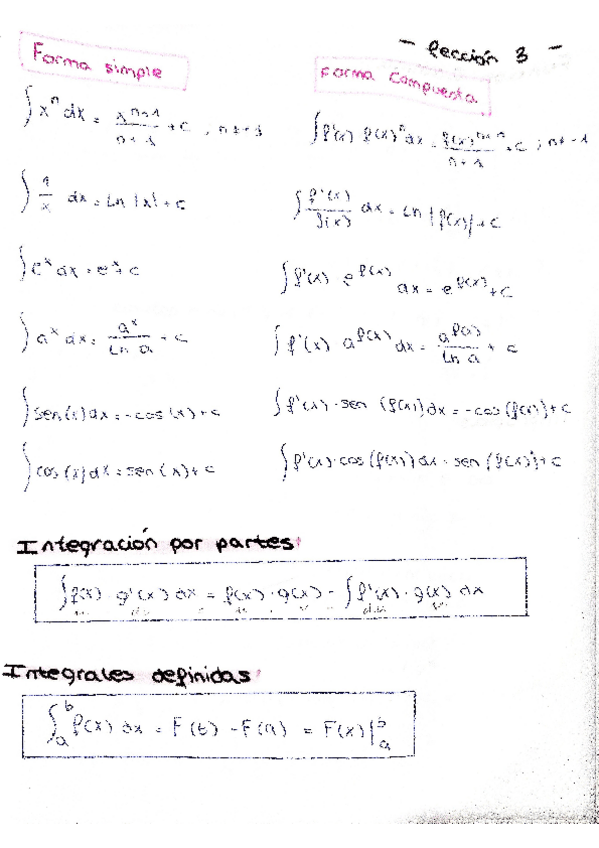 - Lección 3 -
Forma simple
Forma Compuesta
∫xⁿ dx = xⁿ⁺¹/n+1 + c ; n≠-1
∫f'(x) f(x)ⁿ dx = f(x)ⁿ⁺¹/n+1 + c ; n≠-1
∫1/x dx = Ln |x| + c
∫f'(x)/f(x) dx = Ln |f(x)| + c
∫eˣ dx = eˣ + c
∫f'(x) e^f(x) dx = e^f(x) + c
∫aˣ dx = aˣ/Ln a + c
∫f'(x) a^f(x) dx = a^f(x)/Ln a + c
∫sen(x) dx = -cos(x) + c
∫f'(x) · sen (f(x)) dx = -cos (f(x)) + c
∫cos(x) dx = sen(x) + c
∫f'(x) · cos (f(x)) dx = sen (f(x)) + c
Integración por partes
∫f(x) · g'(x) dx = f(x) · g(x) - ∫f'(x) · g(x) dx
Integrales definidas
∫ₐᵇ f(x) dx = F(b) - F(a) = F(x)|ₐᵇ